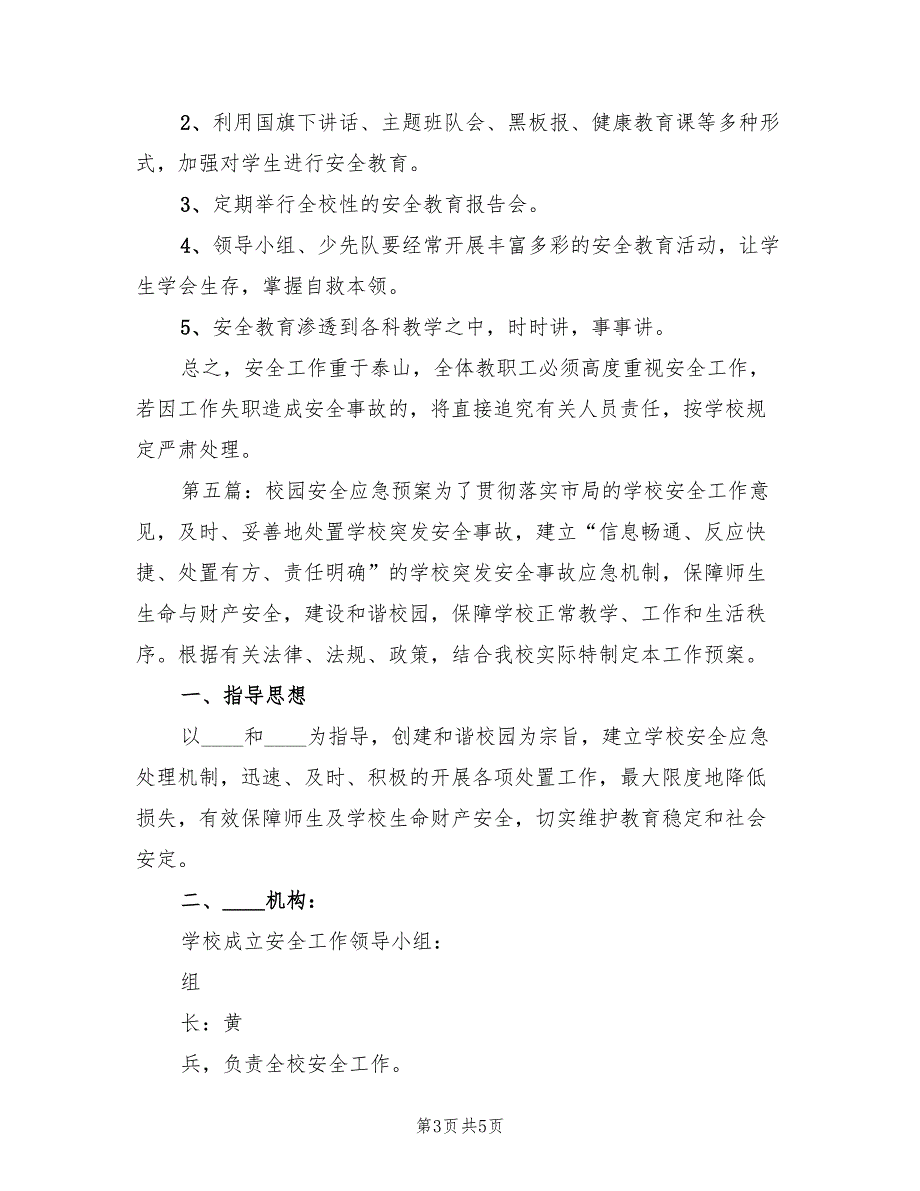 2、利用国旗下讲话、主题班队会、黑板报、健康教育课等多种形
式，加强对学生进行安全教育。
3、定期举行全校性的安全教育报告会。
4、领导小组、少先队要经常开展丰富多彩的安全教育活动，让学
生学会生存，掌握自救本领。
5、安全教育渗透到各科教学之中，时时讲，事事讲。
总之，安全工作重于泰山，全体教职工必须高度重视安全工作，
若因工作失职造成安全事故的，将直接追究有关人员责任，按学校规
定严肃处理。
第五篇：校园安全应急预案为了贯彻落实市局的学校安全工作意
见，及时、妥善地处置学校突发安全事故，建立“信息畅通、反应快
捷、处置有方、责任明确”的学校突发安全事故应急机制，保障师生
生命与财产安全，建设和谐校园，保障学校正常教学、工作和生活秩
序。根据有关法律、法规、政策，结合我校实际特制定本工作预案。
一、指导思想
以____和____为指导，创建和谐校园为宗旨，建立学校安全应急
处理机制，迅速、及时、积极的开展各项处置工作，最大限度地降低
损失，有效保障师生及学校生命财产安全，切实维护教育稳定和社会
安定。
二、____机构：
学校成立安全工作领导小组：
组
长：黄
兵，负责全校安全工作。
第3页共5页